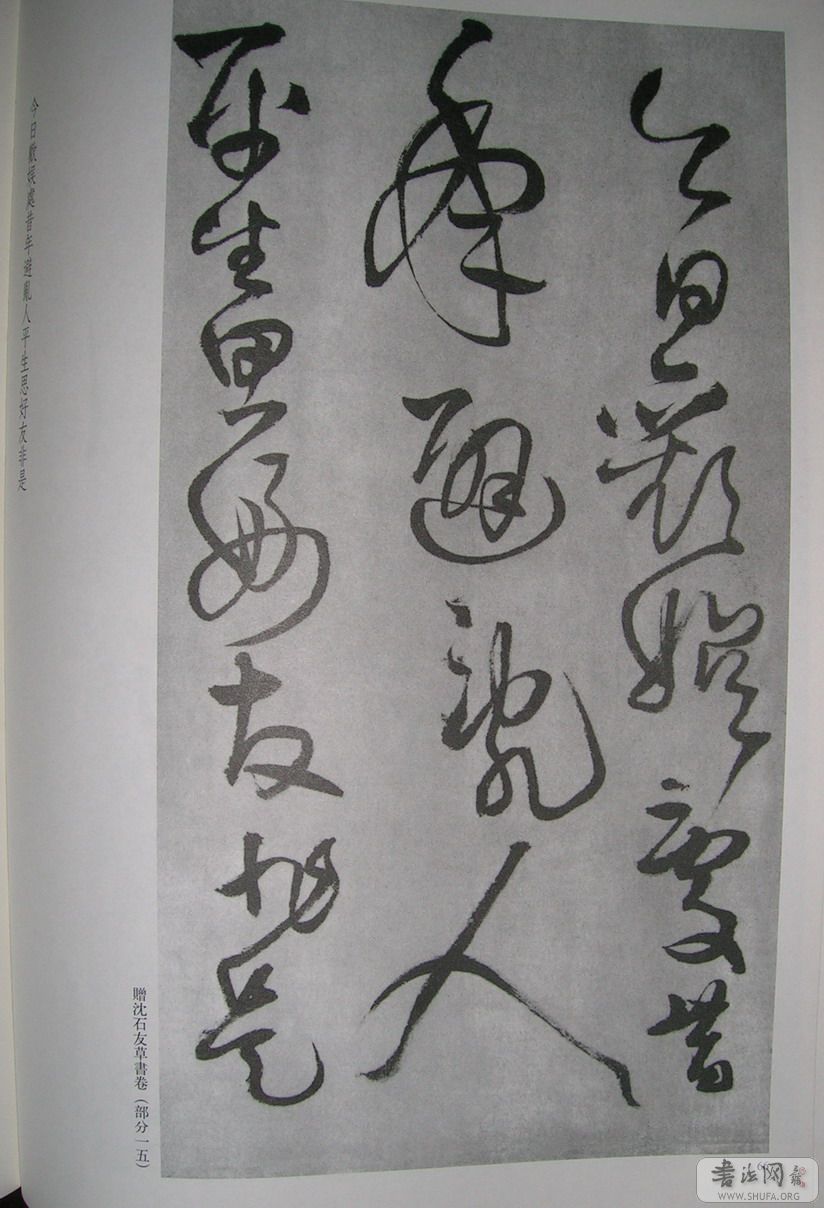 今日歡娛處昔
年避亂人
平生思好友非是
今日歡娛處昔年避亂人平生思好友非是
贈沈石友草書卷（部分一五）
书法网
WWW.SHUFA.ORG